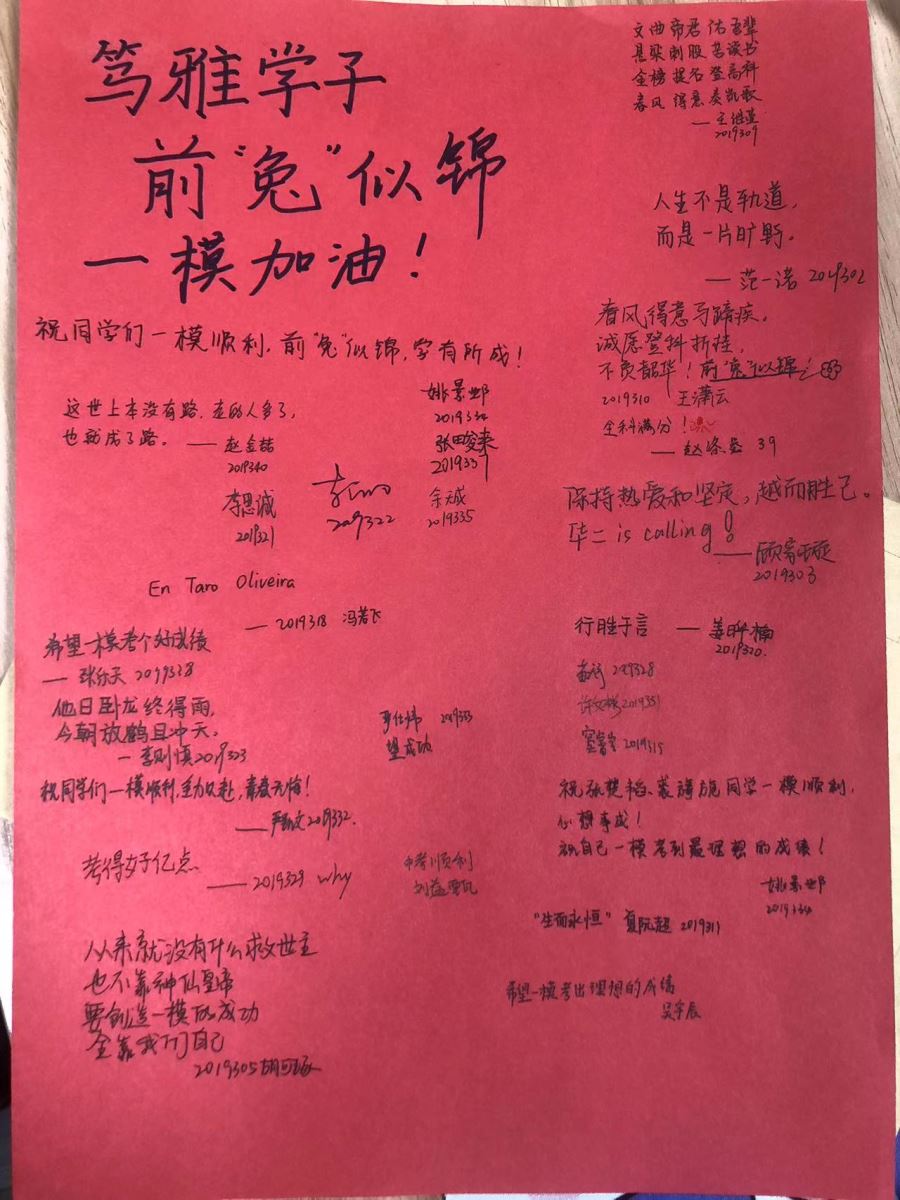 笃雅学子
前"兔"似锦
一模加油！
文曲帝君佑吾辈
悬梁刺股苦读书
金榜提名登高科
春风得意奏凯歌
2019309
人生不是轨道，
而是一片旷野。
——范一诺 2019302
祝同学们一模顺利，前"兔"似锦，学有所成！
姚景邺
2019334
这世上本没有路，走的人多了，
也就成了路。——赵金喆
2019340
春风得意马蹄疾。
诚愿登科折桂，
不负韶华！前"兔"似锦
2019310 王潇云
全科满分！
39
2019337
李思诚
2019321
2019322
余天成
2019335
保持热爱和坚定，越而胜己。
华二 is calling！
2019303
En Taro Oliveira
——2019318 冯若飞
希望一模考个好成绩
——张乐天 2019328
行胜于言 ——姜晔楠
2019320.
2019328
2019331
2019315
他日卧龙终得雨，
今朝放鹤且冲天。
——李则慎 2019323
2019333
望成功
祝同学们一模顺利，全力以赴，青春无悔！
2019332.
祝张楚韬、裘旖旎同学一模顺利，
心想事成！
祝自己一模考到最理想的成绩！
姚景邺
2019334
考得好亿点
——2019329 why
中考顺利
"生而永恒" 夏阮超 2019311
从来就没有什么救世主
也不靠神仙皇帝
要创造一模的成功
全靠我们自己
2019305
希望一模考出理想的成绩
吴宇辰